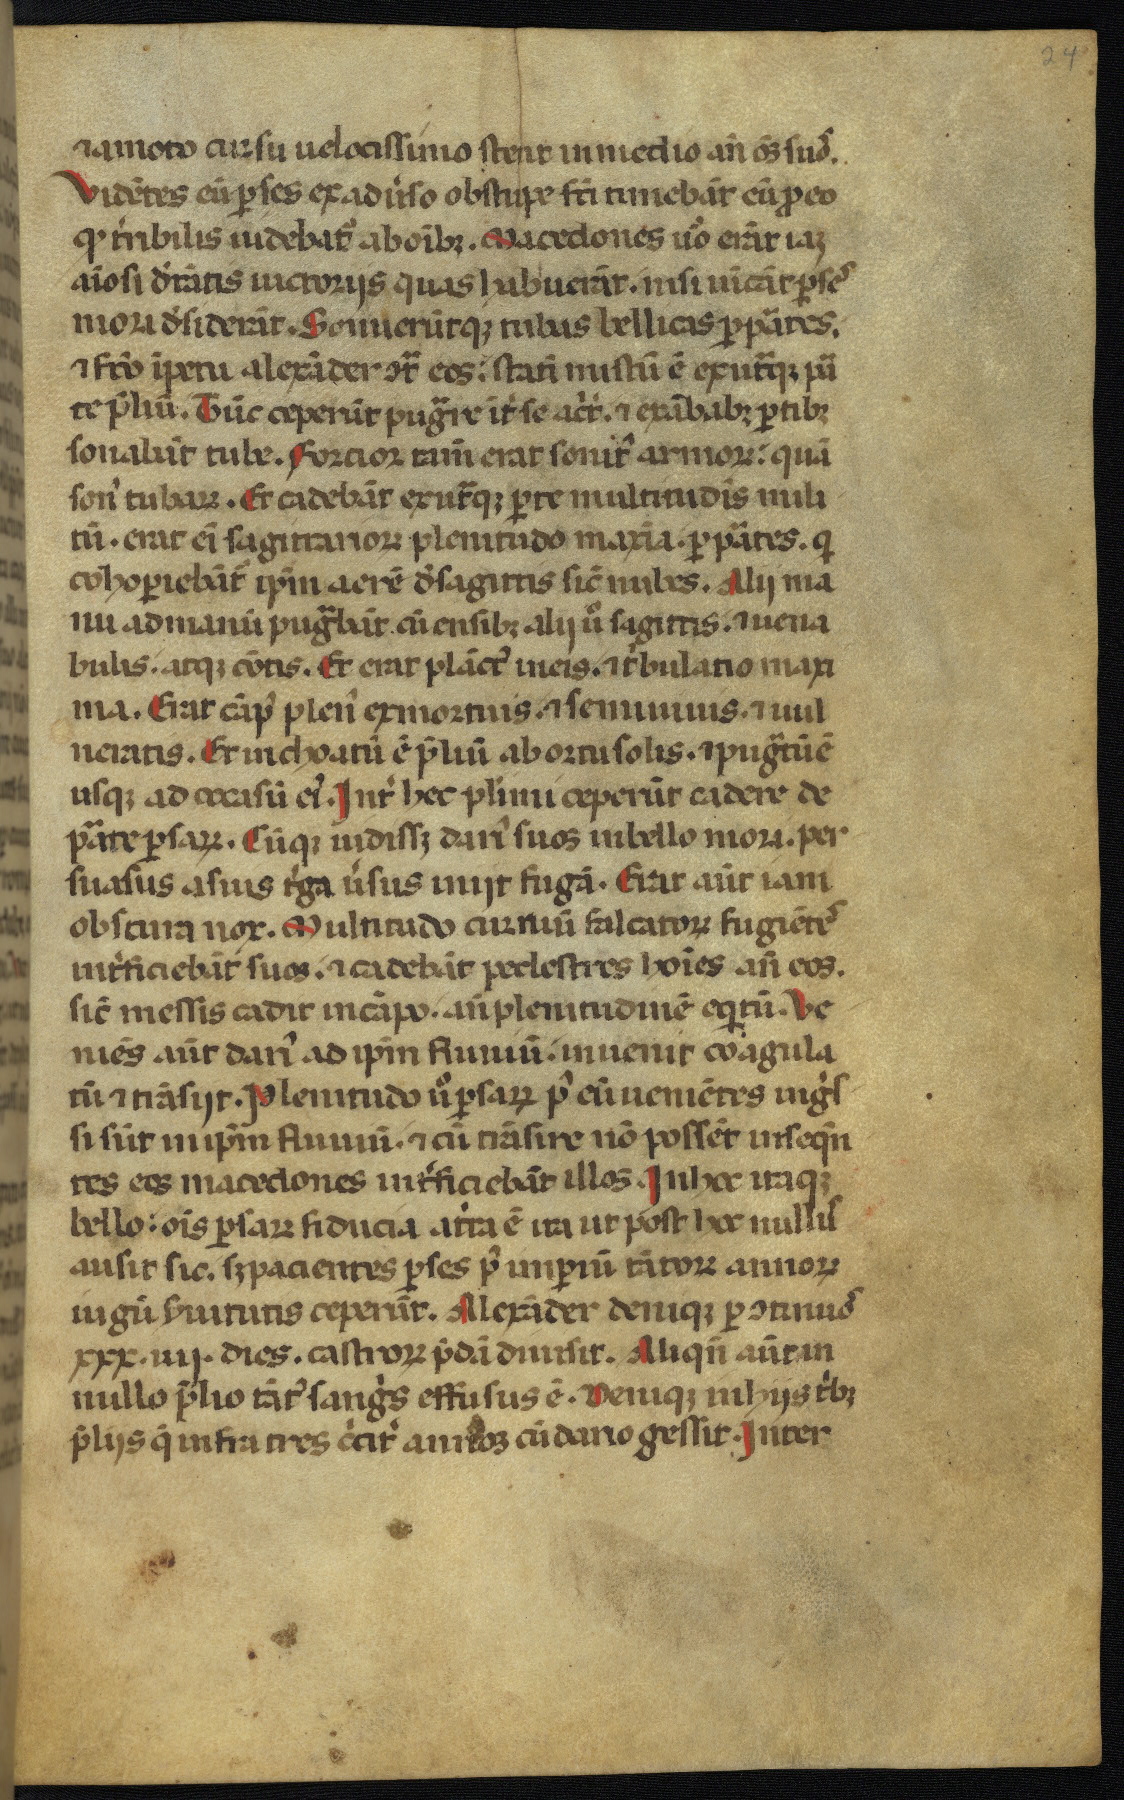 24
⁊ amoto cursu uelocissimo stetit in medio añ oẽs suos.
Vidẽtes eũ ꝑses ex aduˀso obstupe fc̃i timebãt eũ ꝓ eo
qͥ tˀribilis uidebatᷣ ab oĩbꝫ. Macedones uͦo erãt iaꝫ
aĩosi dˀ tãtis uictorijs quas habuerãt. nisi uĩcãt ꝑseˀ
mori dˀsiderãt. Sonuerũtqꝫ tubas bellicas ꝑ ꝑ̃tes.
⁊ fc̃o ĩpetu alexãder ↄͣ eos: statĩ mistũ ẽ ex utͣqꝫ ꝑ
te p̃liũ. Tũc ceperũt pugͣre ĩtˀ se acͥtˀ. ⁊ ex ãbabꝫ ꝑtibꝫ
sonabãt tube. Forcior tam̃ erat sonitˀ armoꝝ: quã
sonˀ tubaꝝ. Et cadebãt ex utͣqꝫ ꝑte multitudĩs mili
tũ. erat ei sagittarioꝝ plenitudo maxĩa. ꝑ ꝑ̃tes. qͥ
cohoꝑiebãtˀ ip̃m aerẽ dˀ sagittis sic̃ nubes. Alij ma
nu ad manũ pugͣbãt cũ ensibꝫ alij uͦ sagittis. ⁊ uena
bulis. atqꝫ cõtis. Et erat plãctˀ in eis. ⁊ tˀbulatio maxi
ma. Erat cãpˀ plenˀ ex mortuis. ⁊ semiuiuis. ⁊ uul
neratis. Et inchoatũ ẽ p̃liũ ab ortu solis. ⁊ pugͣtũ ẽ
usqꝫ ad occasũ eiˀ. Intˀ hec plˀimi ceperũt cadere de
ꝑ̃te ꝑsaꝝ. Cũqꝫ uidissꝫ dariˀ suos in bello mori. per
suasus a suis tˀga uˀsus inijt fugã. Erat aũt iam
obscura nox. Multitudo curruũ falcatoꝝ fugiẽteˀ
intˀficiebãt suos. ⁊ cadebãt pedestres hoĩes añ eos.
sic̃ messis cadit in cãpo. añ plenitudinẽ eqͥtũ. Ve
niẽs aũt dariˀ ad ip̃m fluuiũ. inuenit coagula
tũ ⁊ trãsijt. Plenitudo uͦ ꝑsaꝝ pˀ eũ uenẽtes ingͥs
si sũt in ip̃m fluuiũ. ⁊ cũ trãsire nõ possẽt inseqñ
tes eos macedones intˀficiebãt illos. In hoc itaqꝫ
bello: oĩs ꝑsaꝝ fiducia atˀta ẽ ita ut post hoc nullus
ausit sic. sꝫ pacientes ꝑses pˀ imꝑiũ tãtoꝝ annoꝝ
iugũ ẜuitutis ceperũt. Alexãder deniqꝫ ꝑ ↄtinuos
xxx. iiij. dies. castroꝝ p̃dã diuisit. Aliqñ aũt in
nullo p̃lio tãtˀ sangͥs effusus ẽ. Deniqꝫ in hijs tˀbꝫ
p̃lijs q̃ infra tres cͥcitˀ annos cũ dario gessit. Inter